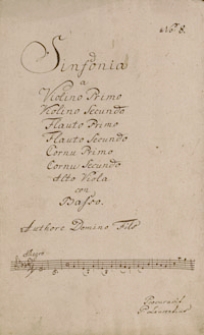 No. 8.
Sinfonia
a
Violino Primo
Violino Secundo
Flauto Primo
Flauto Secundo
Cornu Primo
Cornu Secundo
Alto Viola
con
Basso.
Authore Domino Fils